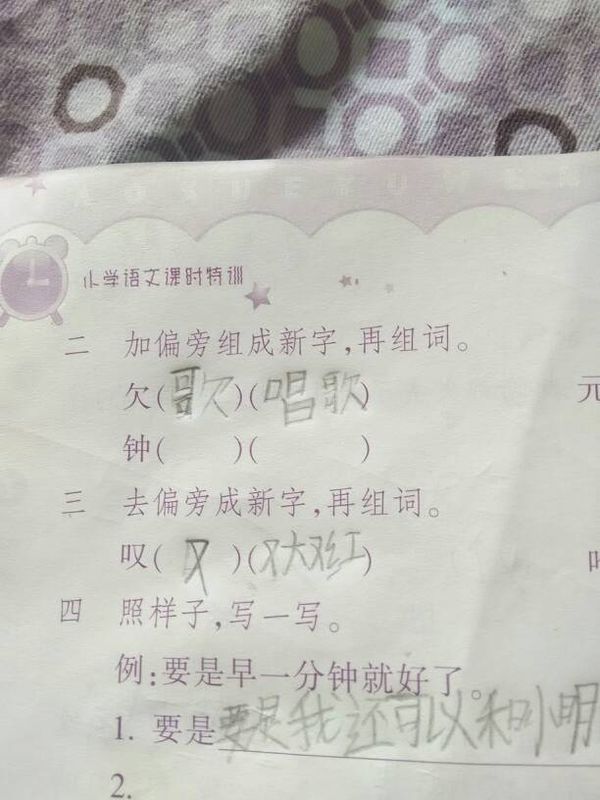 小学语文课时特训
二 加偏旁组成新字,再组词。
欠(歌)(唱歌) 元
钟( )( )
三 去偏旁成新字,再组词。
叹(又)(又大又红)
四 照样子,写一写。
例:要是早一分钟就好了。
1. 要是要是我还可以和小明
2.